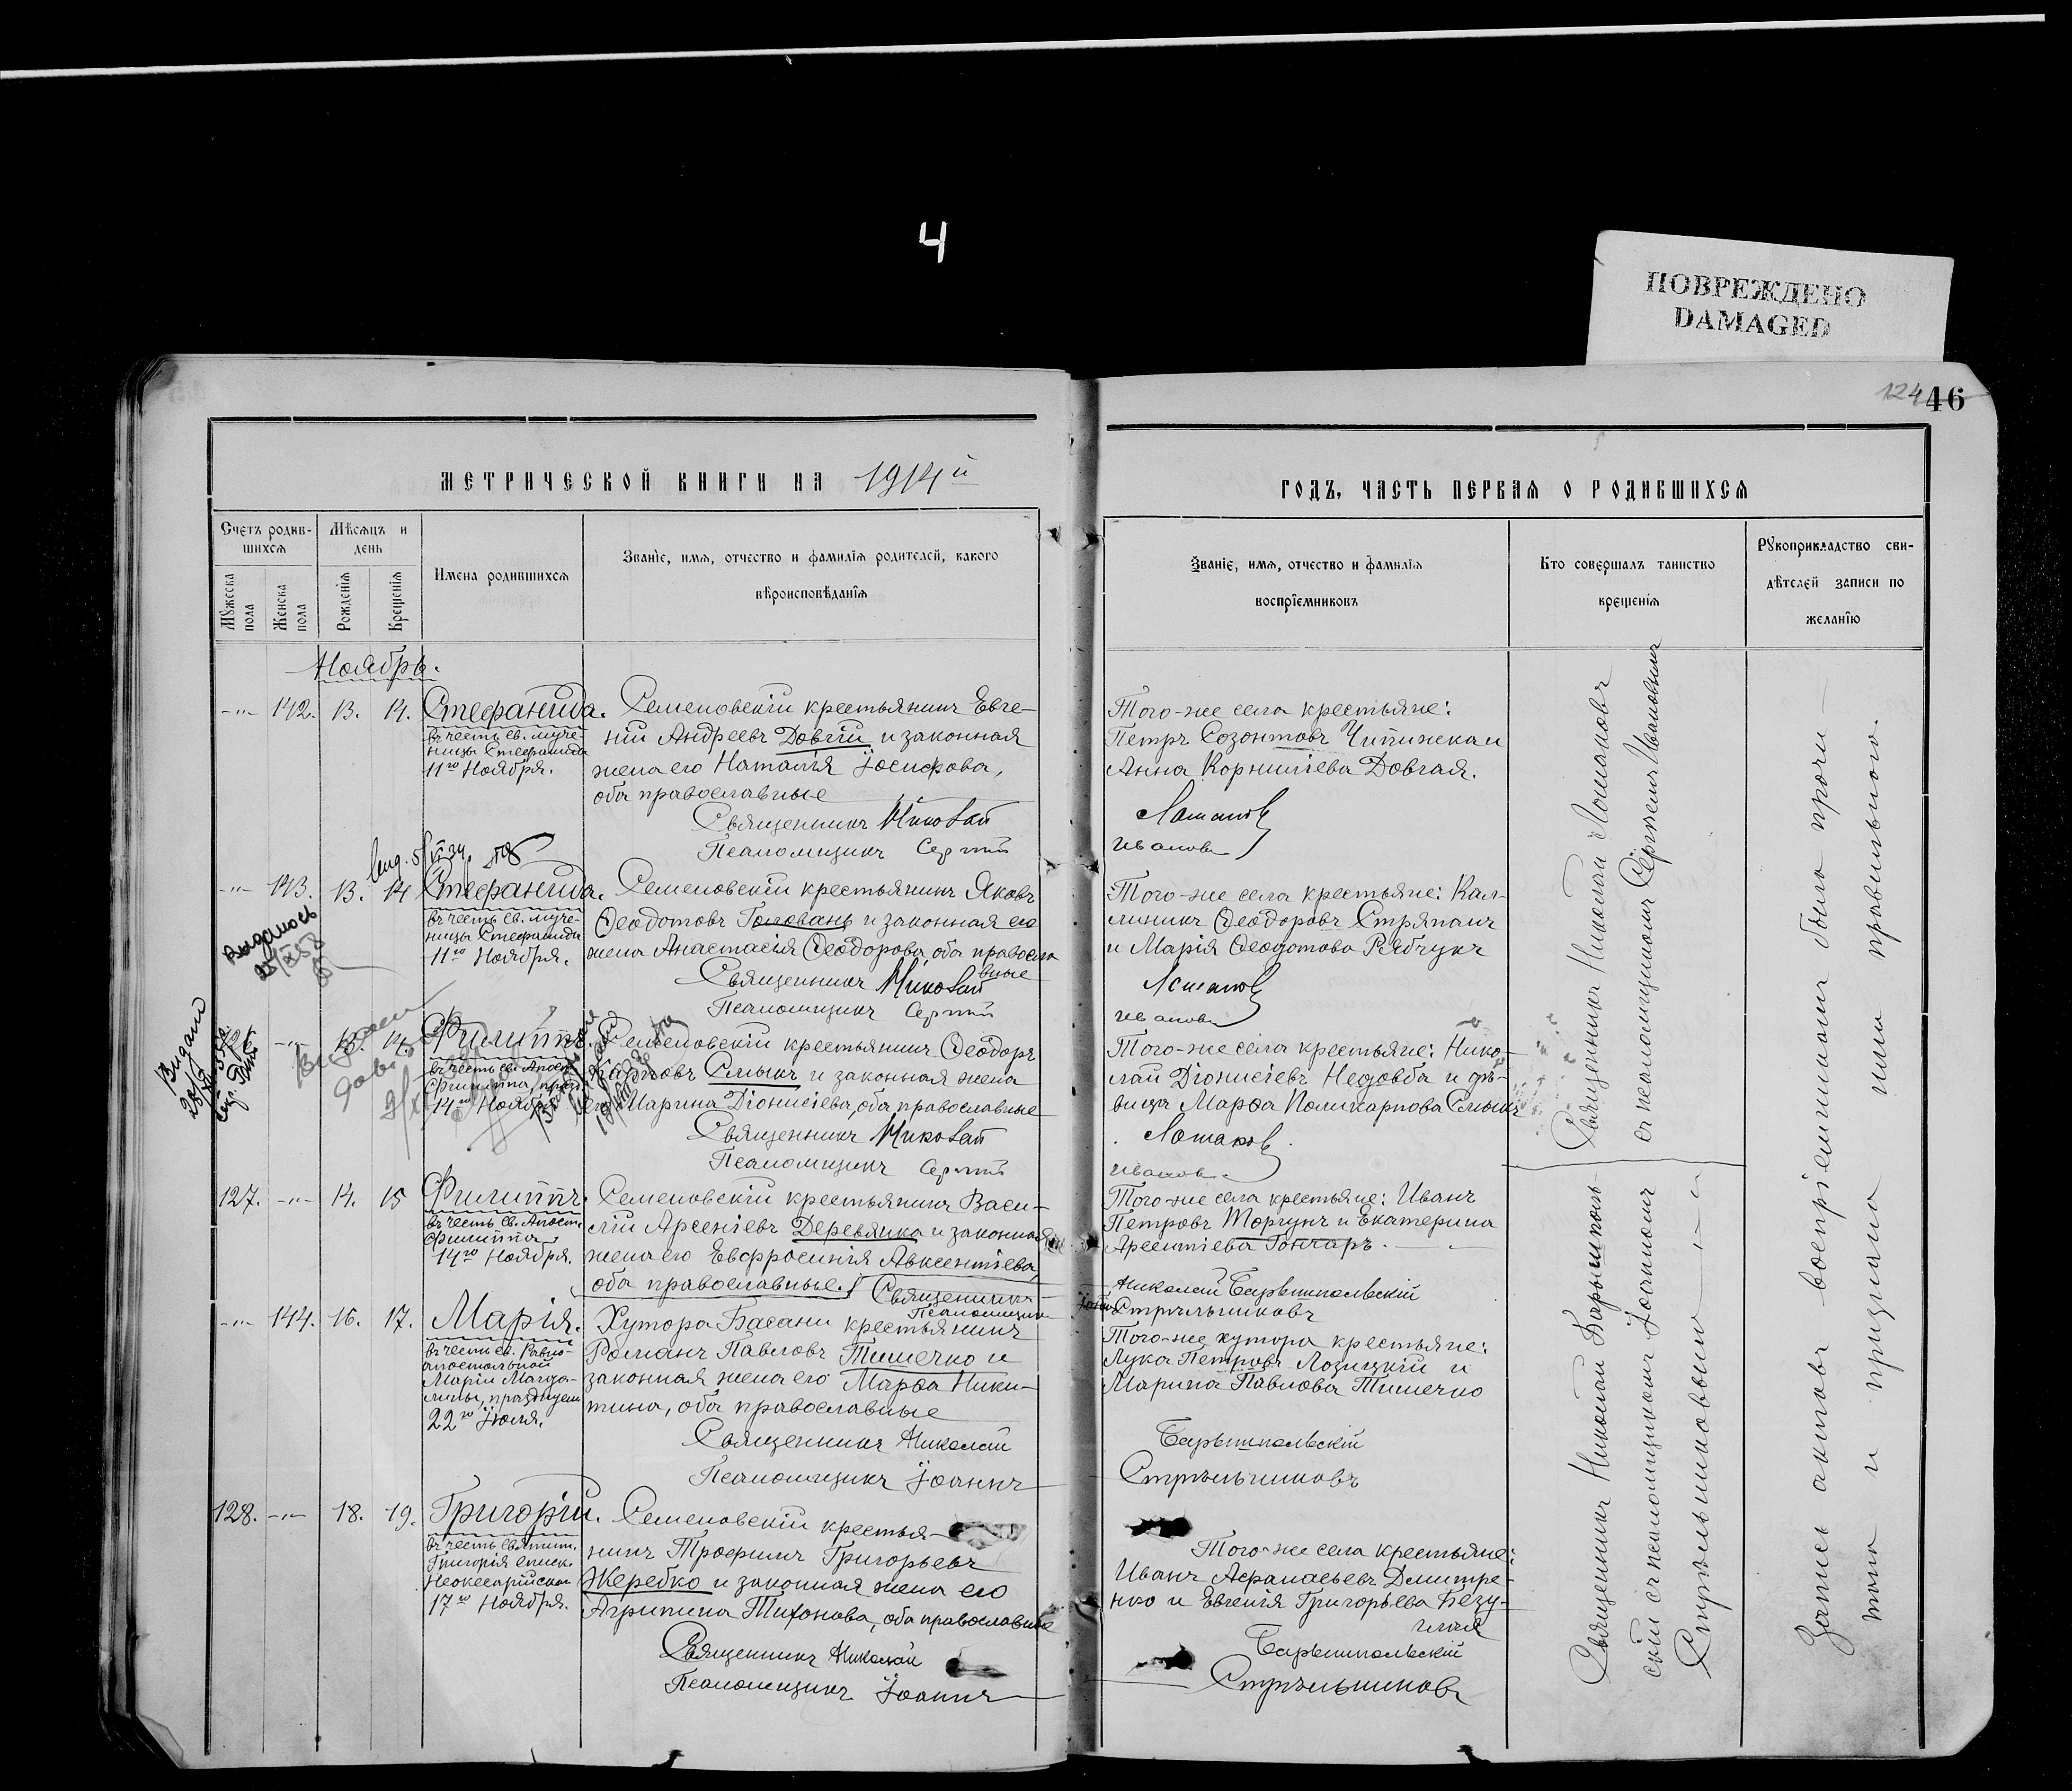 4
ПОВРЕЖДЕНО
DAMAGED
124
46
МЕТРИЧЕСКОЙ КНИГИ НА 1914й
ГОДЪ, ЧАСТЬ ПЕРВАЯ О РОДИВШИХСЯ
Счетъ родив-
шихся
Мужеска
пола
Женска
пола
Мѣсяцъ и
день
Рожденія
Крещенія
Имена родившихся
Званіе, имя, отчество и фамилія родителей, какого
вѣроисповѣданія
Званіе, имя, отчество и фамилія
воспріемниковъ
Кто совершалъ таинство
крещенія
Рукоприкладство сви-
дѣтелей записи по
желанію
Ноябрь.
142. 13. 14. Стефанида.
въ честь св. муче-
ницы Стефаниды
11го Ноября.
Семеновскій крестьянинъ Евге-
ній Андреевъ Довгій и законная
жена его Наталія Іосифова,
оба православные
Священникъ Николай
Псаломщикъ Сергій
Того-же села крестьяне:
Петръ Созонтовъ Чипижека и
Анна Корниліева Довгая.
Лошаковъ
Ивановъ
143. 13. 14 Стефанида.
въ честь св. муче-
ницы Стефаниды
11го Ноября.
Семеновскій крестьянинъ Яковъ
Ѳеодотовъ Головань и законная его
жена Анастасія Ѳеодорова, оба правосла
вные
Священникъ Николай
Псаломщикъ Сергій
Того-же села крестьяне: Кал-
линикъ Ѳеодоровъ Стряпанъ
и Марія Ѳеодотова Рябчукъ
Лошаковъ
Ивановъ
Выдалось
13. 14. Филиппъ.
въ честь св. Апост.
Филиппа, празд.
14го Ноября
Семеновскій крестьянинъ Ѳеодоръ
Карповъ Смыкъ и законная жена
его Марина Діонисіева, оба православные
Священникъ Николай
Псаломщикъ Сергій
Того-же села крестьяне: Нико-
лай Діонисіевъ Недовба и дѣ-
вица Марѳа Поликарпова Смыкъ
Лошаковъ
Ивановъ
127. 14. 15 Филиппъ.
въ честь св. Апост.
Филиппа
14го Ноября.
Семеновскій крестьянинъ Васи-
лій Арсеніевъ Деревянко и законная
жена его Евфросинія Авксентіева,
оба православные. Священникъ
Псаломщикъ
Того-же села крестьяне: Иванъ
Петровъ Моргунъ и Екатерина
Арсентіева Гончаръ.
Николай Барышпольскій
Стрѣльниковъ
144. 16. 17. Марія.
въ честь св. Равно-
апостольной
Маріи Магда-
лины, празднуем
22го Іюля.
Хутора Басани крестьянинъ
Романъ Павловъ Тимечко и
законная жена его Марѳа Ники-
тина, оба православные
Священникъ Николай
Псаломщикъ Іоаннъ
Того-же хутора крестьяне:
Лука Петровъ Лозицкій и
Марина Павлова Тимечко
Барышпольскій
Стрѣльниковъ
128. 18. 19. Григорій.
въ честь Святит.
Григорія еписк.
Неокесарійскаго
17го Ноября.
Семеновскій крестья-
нинъ Трофимъ Григорьевъ
Жеребко и законная жена его
Агрипина Тихонова, оба православные
Священникъ Николай
Псаломщикъ Іоаннъ
Того-же села крестьяне:
Иванъ Афанасьевъ Дмитре-
нко и Евгенія Григорьева Безу-
глая
Барышпольскій
Стрѣльниковъ
Священникъ Николай Лошаковъ
съ псаломщикомъ Сергіемъ Ивановымъ
Священникъ Николай Барышполь-
скій съ псаломщикомъ Іоанномъ
Стрѣльниковымъ
Запись актовъ воспріемниками была прочи-
тана и признана ими правильною.